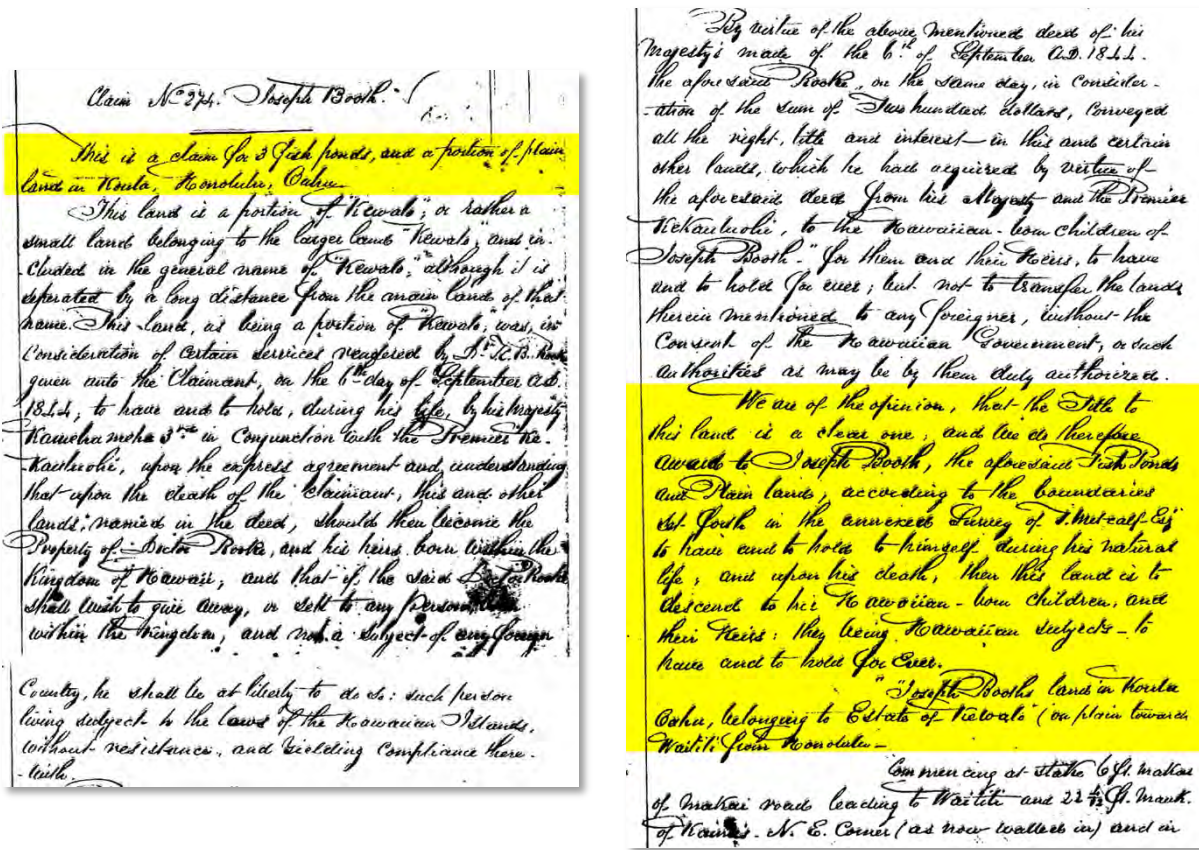 Claim No 274. Joseph Booth.
This is a claim for 3 fish ponds, and a portion of plain
land in Koula, Honolulu, Oahu
This land is a portion of "Kewalo", or rather a
small land belonging to the larger land "Kewalo", and in-
-cluded in the general name of "Kewalo," although it is
seperated by a long distance from the main land of that
name. This land, as being a portion of "Kewalo", was, in
consideration of certain services rendered by Dr. T. C. B. Rooke
given unto the Claimant, on the 6th day of September A.D.
1844; to have and to hold, during his life, by his Majesty
Kamehameha 3rd in Conjunction with the Premier Ke-
-kauluohi, upon the express agreement and understanding
that upon the death of the Claimant, this and other
lands, named in the deed, should then become the
Property of Doctor Rooke, and his heirs, born within the
Kingdom of Hawaii; and that if the said Doctor Rooke
shall wish to give away, or sell to any person,
within the Kingdom, and not a subject of any foreign
Country, he shall be at liberty to do so: such person
living subject to the laws of the Hawaiian Islands,
without resistance, and yielding compliance there-
-with.
By virtue of the above mentioned deed of his
Majesty's made of the 6th of September A.D. 1844.
the aforesaid Rooke, on the same day, in consider-
-ation of the sum of Two hundred dollars, conveyed
all the right, title and interest in this and certain
other lands, which he had acquired by virtue of
the aforesaid deed from his Majesty and the Premier
Kekauluohi, to the Hawaiian-born children of
Joseph Booth. "for them and their Heirs, to have
and to hold for ever; but not to transfer the lands
therein mentioned to any foreigner, without the
Consent of the Hawaiian Government, or such
authorities as may be by them duly authorized.
We are of the opinion, that the Title to
this land is a clear one, and we do therefore
award to Joseph Booth, the aforesaid Fish Ponds
and Plain lands, according to the boundaries
set forth in the annexed Survey of T. Metcalf Esqr
to have and to hold to himself during his natural
life; and upon his death, then this land is to
descend to his Hawaiian-born children, and
their Heirs: they being Hawaiian subjects - to
have and to hold for Ever.
"Joseph Booths land in Koula
Oahu, belonging to Estate of Kewalo" (on plain towards
Waititi from Honolulu -
Commencing at stake 6 ft. makai
of makai road leading to Waititi and 22 ft. Mauk.
of N. E. Corner (as now walled in) and in